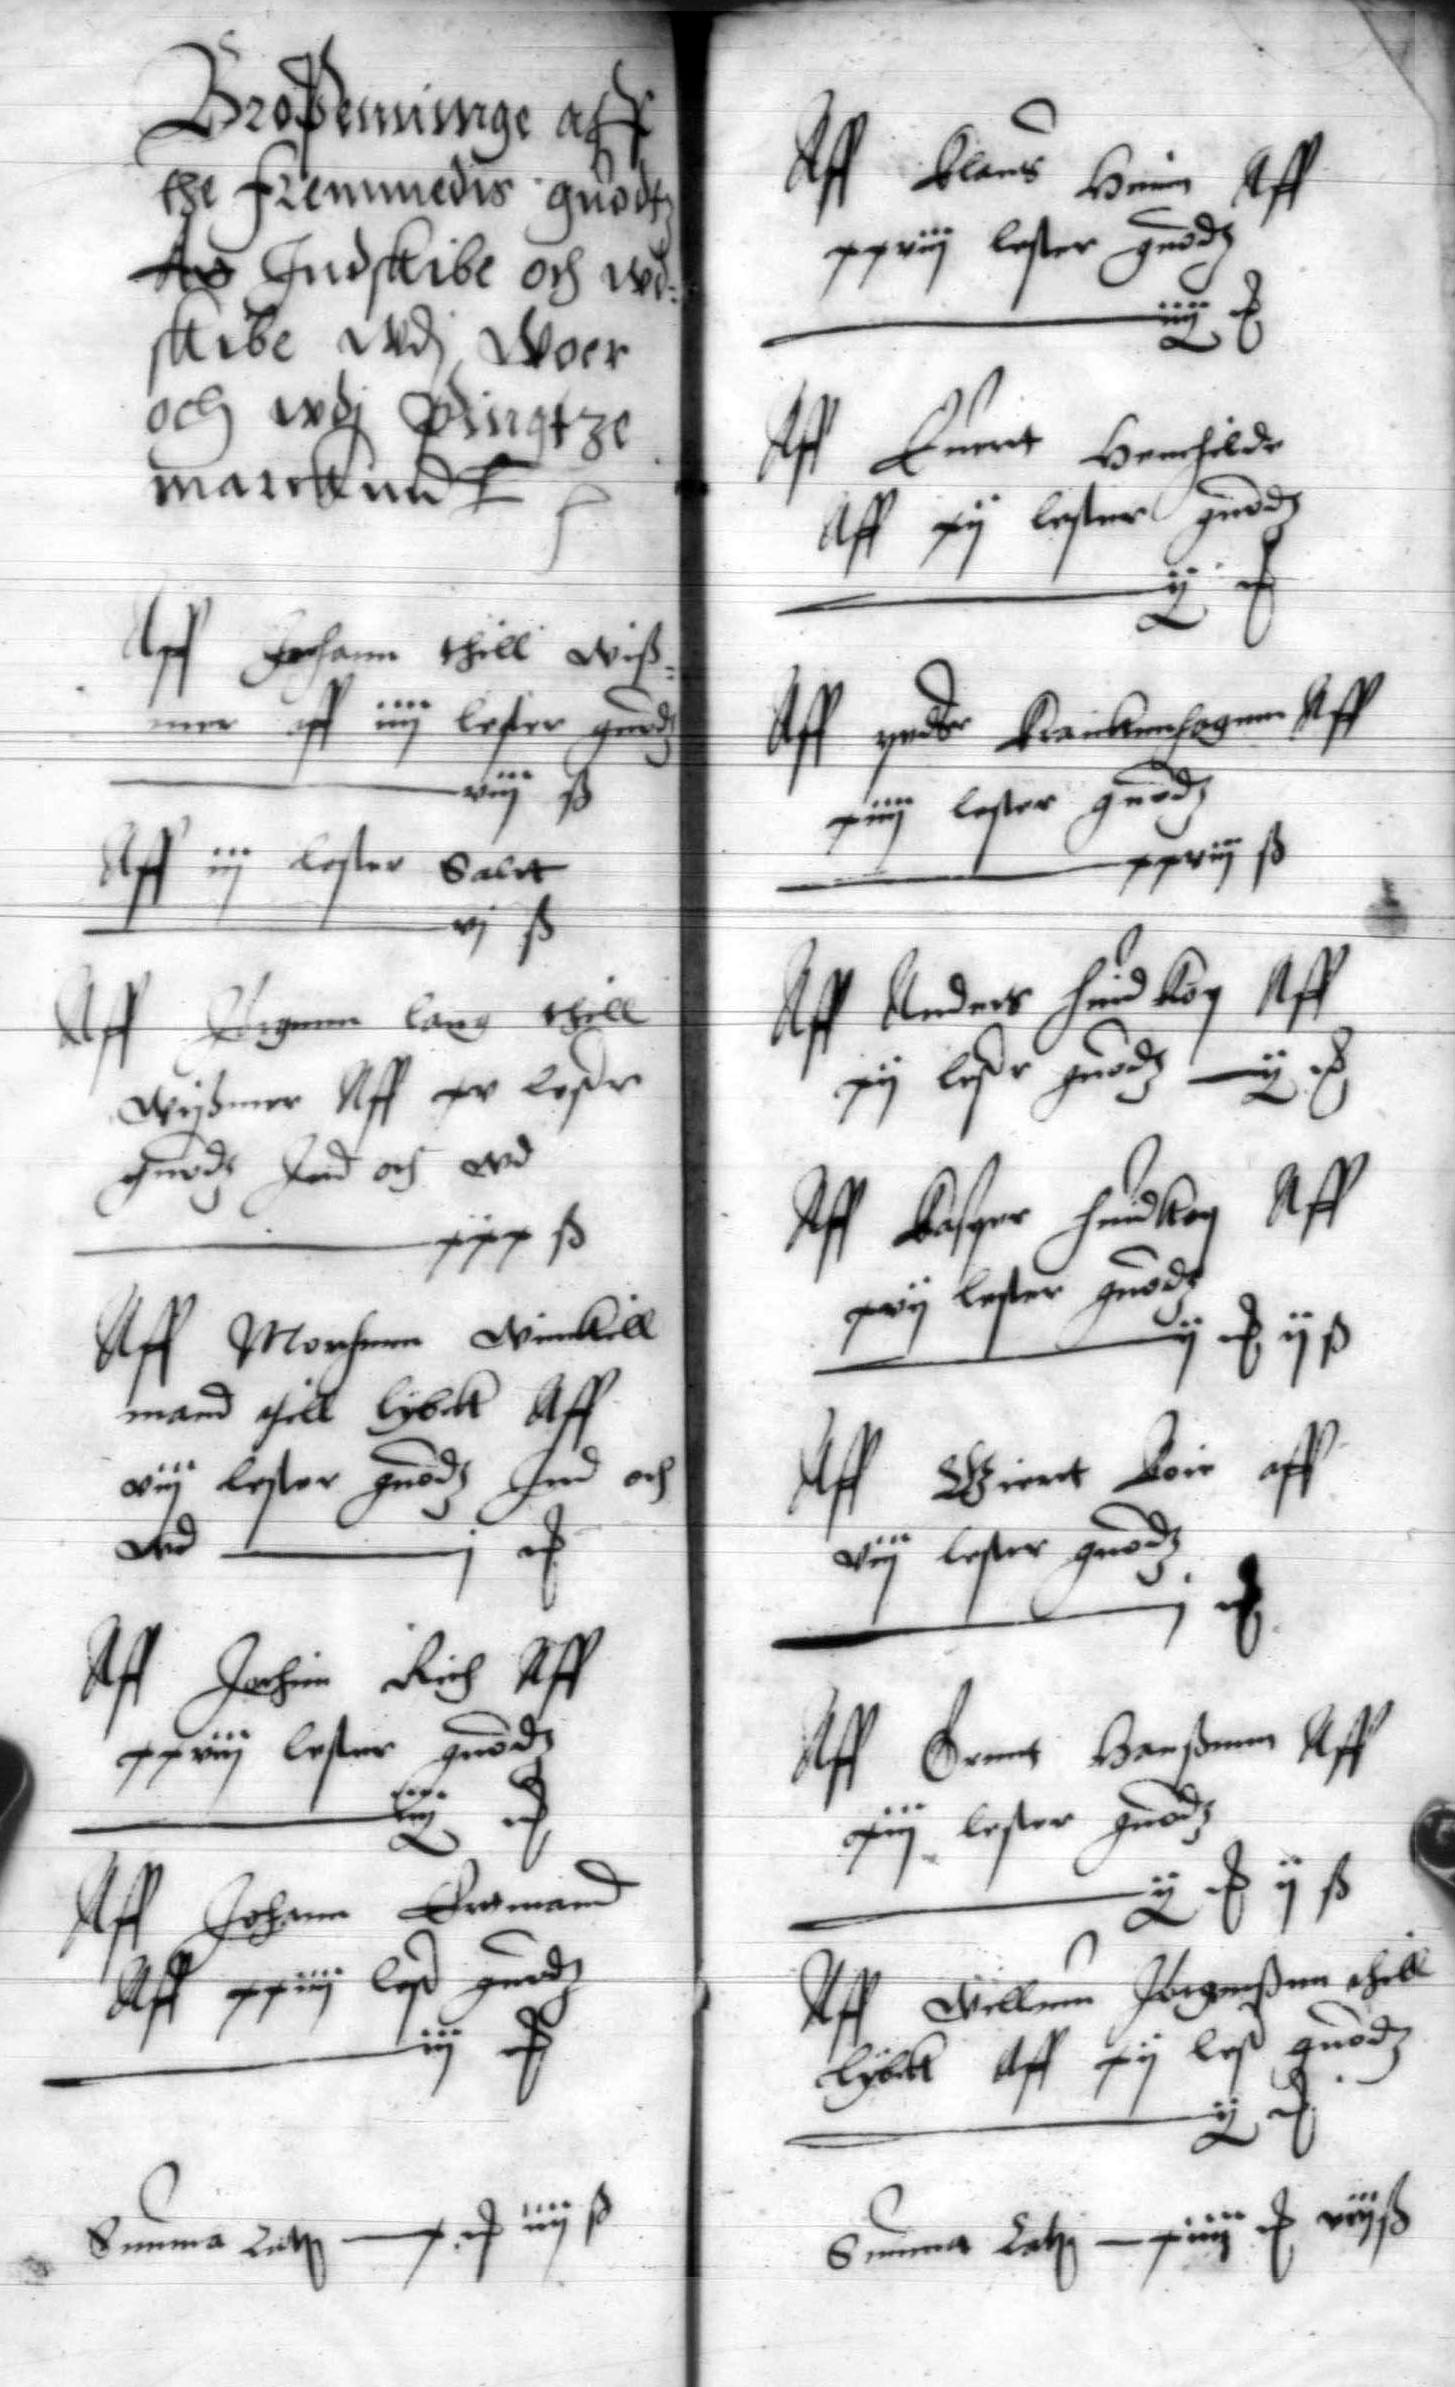 Bropenninge aff
the fremmedis guodtz
Indskibe och wd=
skibe wdj Woer
och wdj Pingtze
marckitnd
Aff Johann thill wiß=
mer aff iiij lester guodtz
viij ß
Aff iij lester Salt
vj ß
Aff Jurgenn lang thill
Wyßmer Aff xv lester
guodtz Ind och wd
xxx ß
Aff Morthenn Winckill
mand thill lybeck Aff
viij lester guodtz Ind och
wd j mk
Aff Jochim Rich Aff
xxviij lester guodtz
iiij mk
Aff Johann mand
Aff xxiiij lest guodtz
iij mk
Summa Lateris x mk iiij ß
Aff Klaus Aff
xxviij lester guodtz
iiij mk
Aff Euert
Aff xij lester guodtz
ij mk
Aff peder Krankenhagenn Aff
xiiij lester guodtz
xxviij ß
Aff Anders Huidkop Aff
xij lester guodtz ij mk
Aff Kasper Huidkop Aff
xvij lester guodtz
ij mk ij ß
Aff Wiert Aff
viij lester guodtz
j mk
Aff Hanßenn Aff
xiij lester guodtz
ij mk ij ß
Aff Willem Jorgenßenn thill
lybeck Aff xij lest guodtz
ij mk
Summa Lateris xiiij mk viij ß